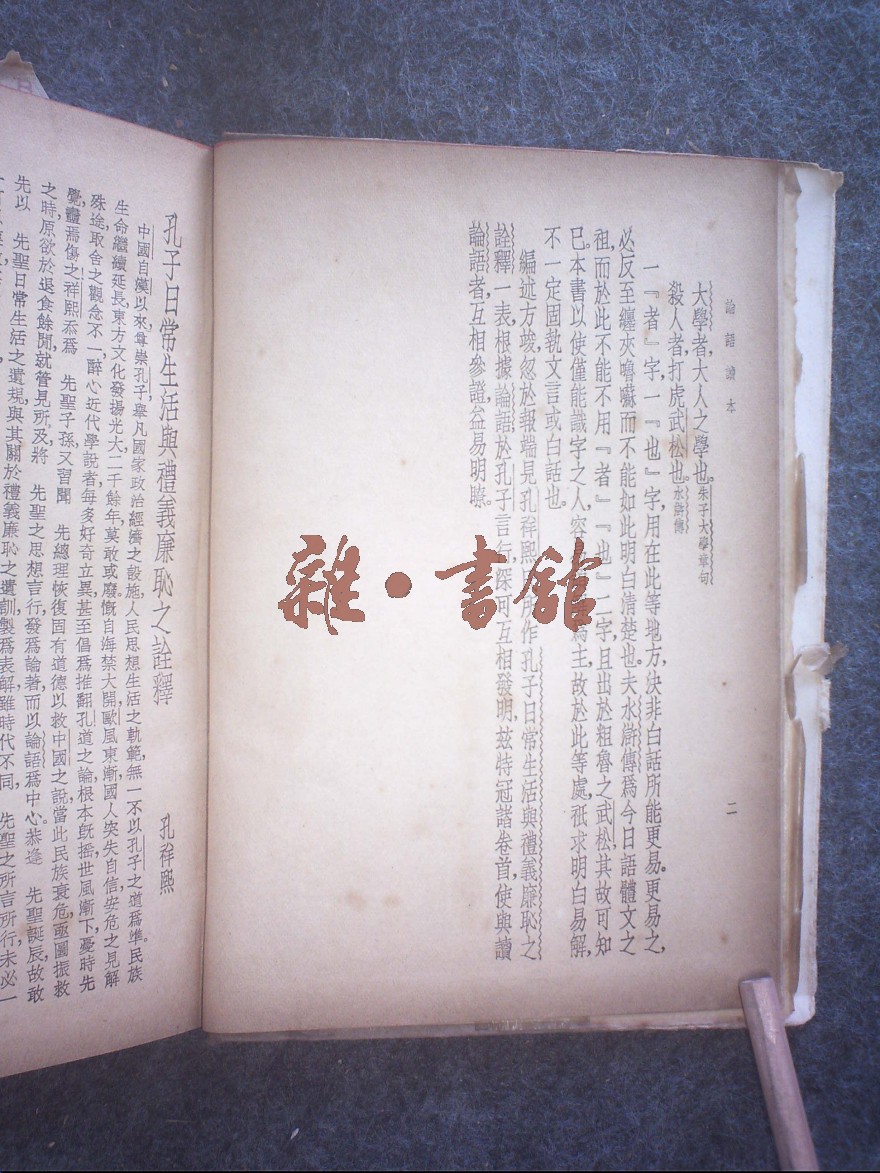 論語讀本
二
大學者，大人之學也。朱子大學章句
殺人者打虎武松也。水滸傳
一『者』字一『也』字，用在此等地方，決非白話所能更易。更易之，
必反至纏夾嚕囌而不能如此明白清楚也。夫水滸傳爲今日語體文之
祖，而於此不能不用『者』『也』二字，且出於粗魯之武松，其故可知
已。本書以使僅能識字之人，容爲主，故於此等處，祇求明白易解，
不一定固執文言或白話也。
編述方竣，忽於報端見孔祥熙所作孔子日常生活與禮義廉恥之
詮釋一表，根據論語於孔子言行，深可互相發明，茲特冠諸卷首，使與讀
論語者，互相參證，益易明瞭。
孔子日常生活與禮義廉恥之詮釋
孔祥熙
中國自漢以來，尊崇孔子，舉凡國家政治經濟之設施，人民思想生活之軌範，無一不以孔子之道爲準。民族
生命繼續延長，東方文化發揚光大，二千餘年，莫敢或廢。慨自海禁大開，歐風東漸，國人突失自信，安危之見解
殊途，取舍之觀念不一，醉心近代學說者，每多好奇立異，甚至倡爲推翻孔道之論，根本旣搖，世風漸下，憂時先
覺，盡焉傷之。祥熙忝爲 先聖子孫，又習聞 先總理恢復固有道德以救中國之說，當此民族衰危，亟圖振救
之時，原欲於退食餘閒，就管見所及，將 先聖之思想言行，發爲論著，而以論語爲中心。恭逢 先聖誕辰，故敢
先以 先聖日常生活之遺規，與其關於禮義廉恥之遺訓，製爲表解，雖時代不同， 先聖之所言所行，未必一
雜·書館